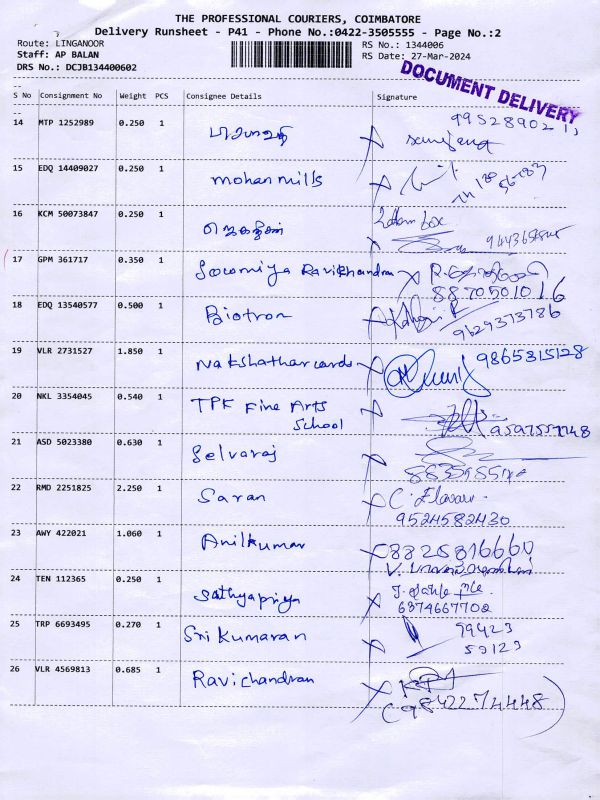 THE PROFESSIONAL COURIERS, COIMBATORE
Delivery Runsheet - P41 - Phone No.:0422-3505555 - Page No.:2
Route: LINGANOOR RS No.: 1344006
Staff: AP BALAN RS Date: 27-Mar-2024
DRS No.: DCJB134400602
DOCUMENT DELIVERY
S No Consignment No Weight PCS Consignee Details Signature
14 MTP 1252989 0.250 1
15 EDQ 14409027 0.250 1 mohan mills
16 KCM 50073847 0.250 1
17 GPM 361717 0.350 1 Sowmiya Ravichandran
8870501016
18 EDQ 13540577 0.500 1 Biotron
9629373786
19 VLR 2731527 1.850 1 Nakshathar cards 9865315128
20 NKL 3354045 0.540 1 TPK Fine Arts
School
21 ASD 5023380 0.630 1 Selvaraj
22 RMD 2251825 2.250 1 Saran
9524582430
23 AWY 422021 1.060 1 Anilkumar 8825816660
24 TEN 112365 0.250 1 Sathyapriya
6374667702
25 TRP 6693495 0.270 1 Sri Kumaran 99423
26 VLR 4569813 0.685 1 Ravichandran
9842274448